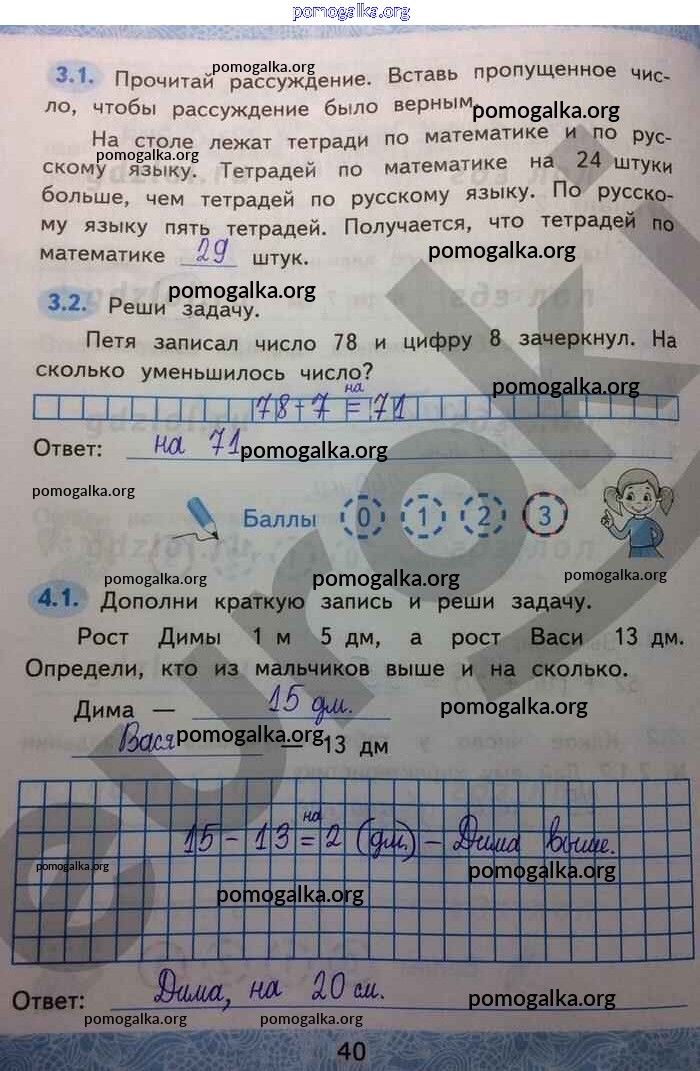 pomogalka.org
3.1. Прочитай рассуждение. Вставь пропущенное чис-
pomogalka.org
ло, чтобы рассуждение было верным.
pomogalka.org
На столе лежат тетради по математике и по рус-
pomogalka.org
скому языку. Тетрадей по математике на 24 штуки
больше, чем тетрадей по русскому языку. По русско-
му языку пять тетрадей. Получается, что тетрадей по
математике 29 штук.
pomogalka.org
pomogalka.org
3.2. Реши задачу.
Петя записал число 78 и цифру 8 зачеркнул. На
сколько уменьшилось число?
pomogalka.org
78-7 =на 71
Ответ: на 71
pomogalka.org
pomogalka.org
Баллы 0 1 2 3
pomogalka.org pomogalka.org pomogalka.org
4.1. Дополни краткую запись и реши задачу.
Рост Димы 1 м 5 дм, а рост Васи 13 дм.
Определи, кто из мальчиков выше и на сколько.
Дима — 15 дм.
pomogalka.org
Вася — 13 дм
pomogalka.org
15 - 13 =на 2 (дм.) - Дима выше.
pomogalka.org pomogalka.org
pomogalka.org
Ответ: Дима, на 20 см.
pomogalka.org
pomogalka.org pomogalka.org
40
euroki